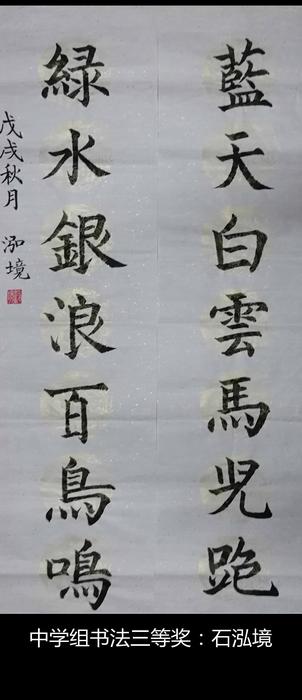 藍天白雲馬児跑
緑水銀浪百鳥鳴
戊戌秋月 泓境
中学组书法三等奖：石泓境